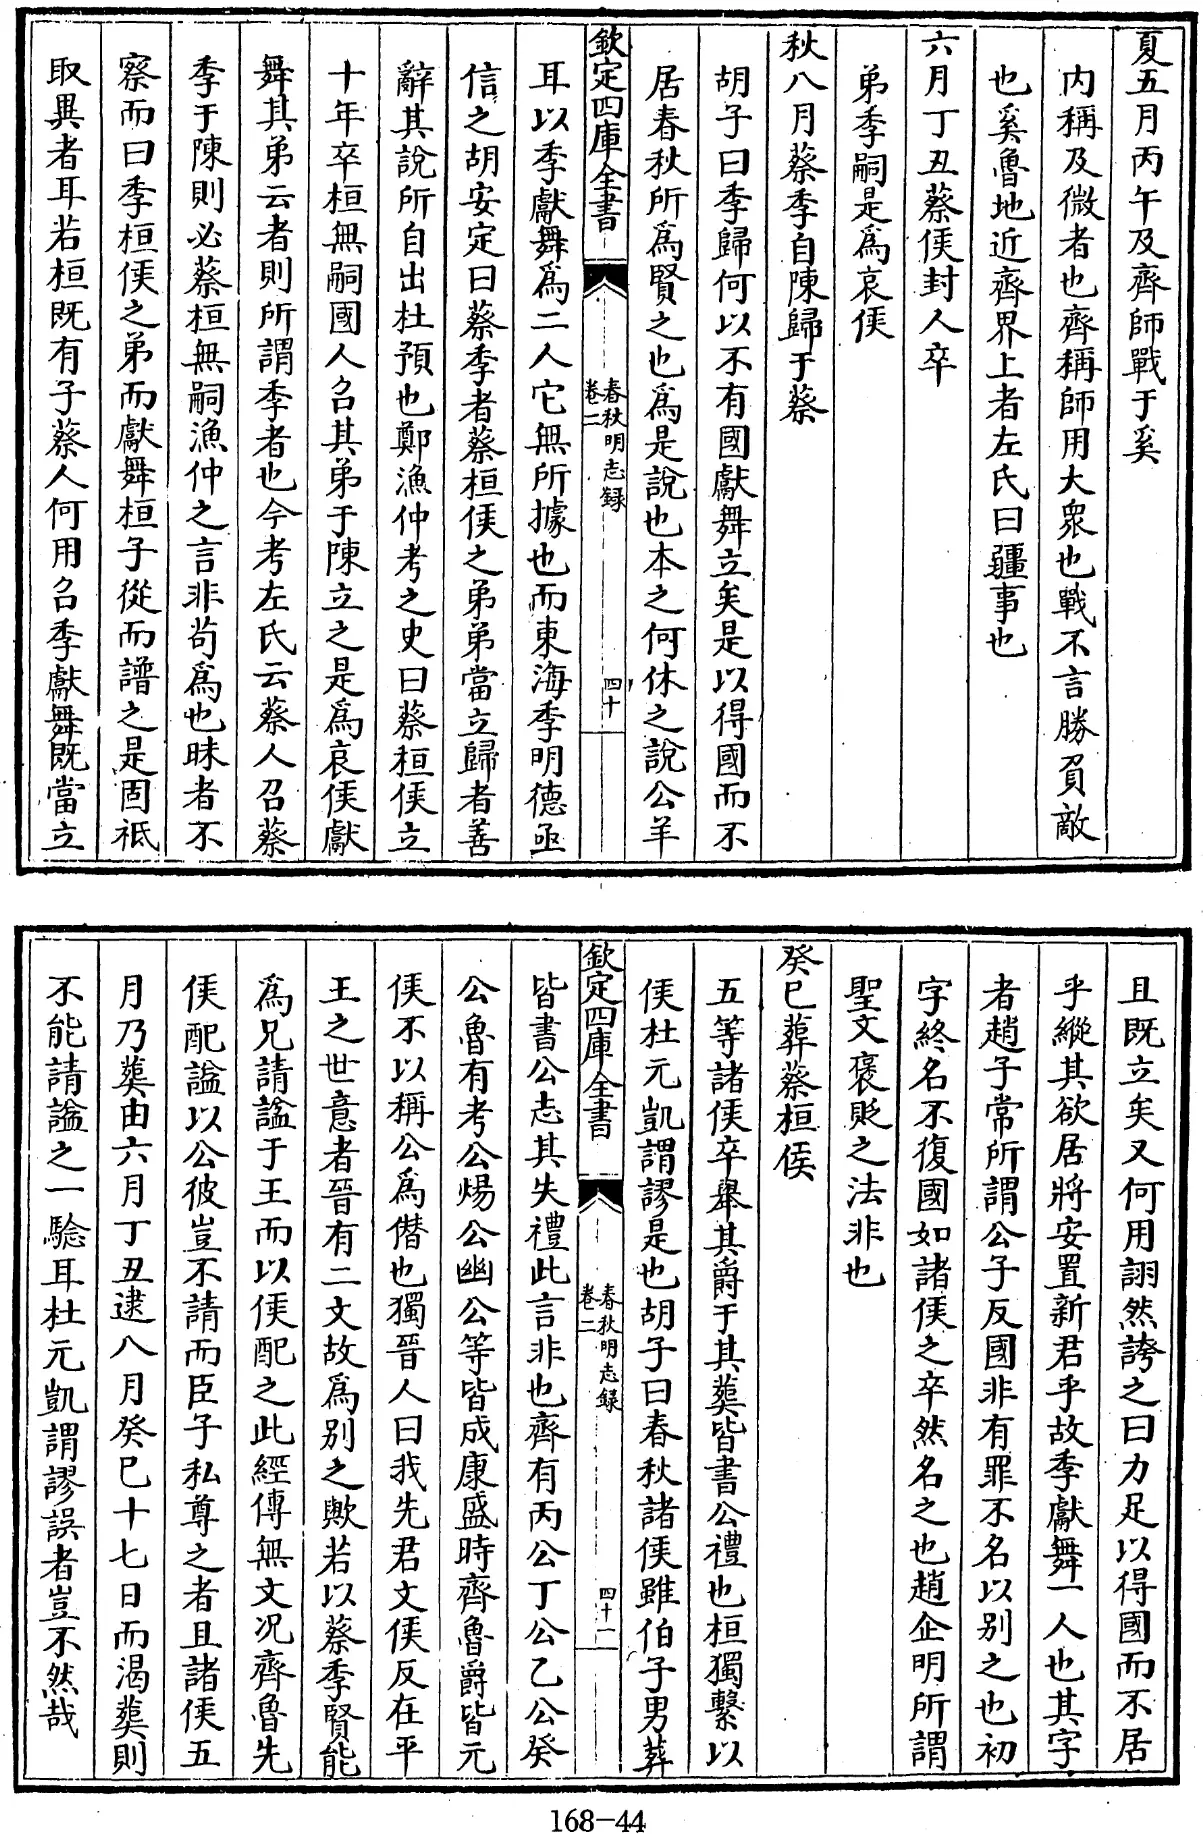 夏五月丙午及齊師戰于奚
内稱及微者也齊稱師用大衆也戰不言勝負敵
也奚魯地近齊界上者左氏曰疆事也
六月丁丑蔡侯封人卒
弟季嗣是爲哀侯
秋八月蔡季自陳歸于蔡
胡子曰季歸何以不有國獻舞立矣是以得國而不
居春秋所爲賢之也爲是說也本之何休之說公羊
欽定四庫全書
春秋明志録
卷二
四十
耳以季獻舞爲二人它無所據也而東海季明德亟
信之胡安定曰蔡季者蔡桓侯之弟弟當立歸者善
辭其說所自出杜預也鄭漁仲考之史曰蔡桓侯立
十年卒桓無嗣國人召其弟于陳立之是爲哀侯獻
舞其弟云者則所謂季者也今考左氏云蔡人召蔡
季于陳則必蔡桓無嗣漁仲之言非苟爲也昧者不
察而曰季桓侯之弟而獻舞桓子從而譜之是固祗
取異者耳若桓既有子蔡人何用召季獻舞既當立
且既立矣又何用詡然誇之曰力足以得國而不居
乎縱其欲居將安置新君乎故季獻舞一人也其字
者趙子常所謂公子反國非有罪不名以别之也初
字終名不復國如諸侯之卒然名之也趙企明所謂
聖文褒貶之法非也
癸巳葬蔡桓侯
五等諸侯卒舉其爵于其葬皆書公禮也桓獨繫以
侯杜元凱謂謬是也胡子曰春秋諸侯雖伯子男葬
欽定四庫全書
春秋明志録
卷二
四十一
皆書公志其失禮此言非也齊有丙公丁公乙公癸
公魯有考公煬公幽公等皆成康盛時齊魯爵皆元
侯不以稱公爲僭也獨晉人曰我先君文侯反在平
王之世意者晉有二文故爲别之歟若以蔡季賢能
爲兄請謚于王而以侯配之此經傳無文况齊魯先
侯配謚以公彼豈不請而臣子私尊之者且諸侯五
月乃葬由六月丁丑逮八月癸巳十七日而渴葬則
不能請謚之一驗耳杜元凱謂謬誤者豈不然哉
168-44